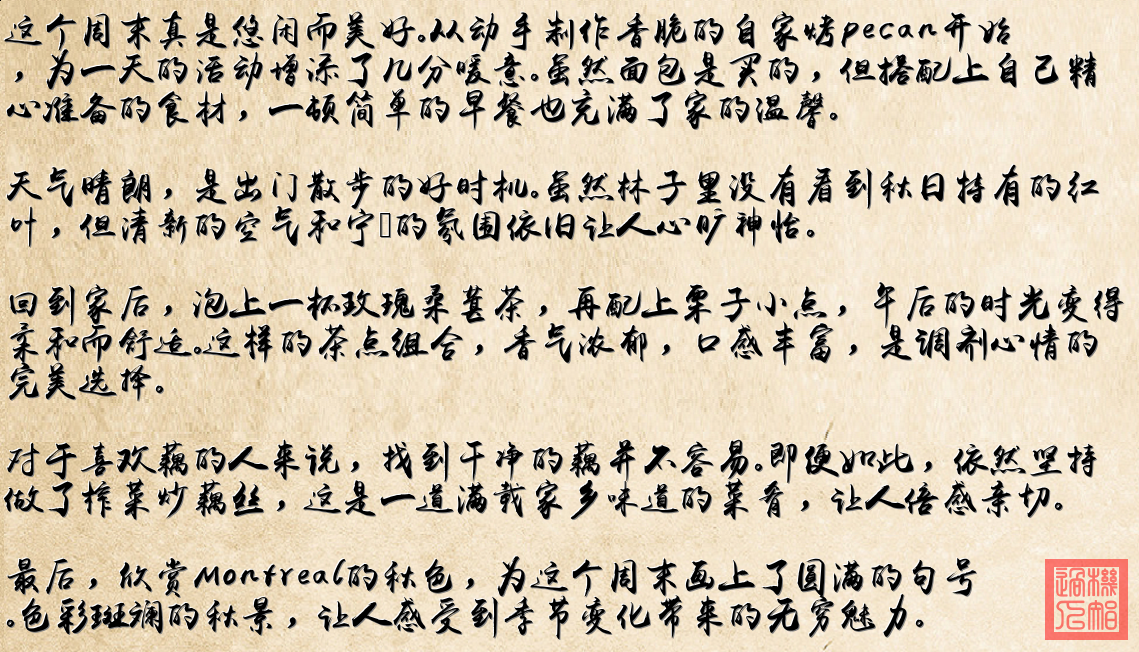 这个周末真是悠闲而美好。从动手制作香脆的自家烤pecan开始
，为一天的活动增添了几分暖意。虽然面包是买的，但搭配上自己精
心准备的食材，一顿简单的早餐也充满了家的温馨。
天气晴朗，是出门散步的好时机。虽然林子里没有看到秋日特有的红
叶，但清新的空气和宁的氛围依旧让人心旷神怡。
回到家后，泡上一杯玫瑰桑葚茶，再配上栗子小点，午后的时光变得
柔和而舒适。这样的茶点组合，香气浓郁，口感丰富，是调剂心情的
完美选择。
对于喜欢藕的人来说，找到干净的藕并不容易。即便如此，依然坚持
做了榨菜炒藕丝，这是一道满载家乡味道的菜肴，让人倍感亲切。
最后，欣赏Montreal的秋色，为这个周末画上了圆满的句号
。色彩斑斓的秋景，让人感受到季节变化带来的无穷魅力。